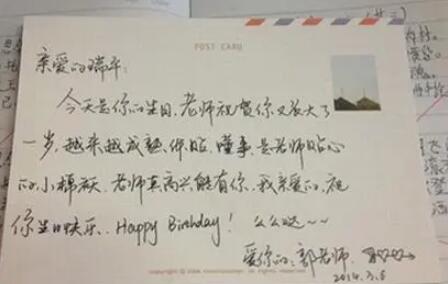 POST CARD
亲爱的瑞平:
今天是你的生日,老师祝贺你又长大了
一岁,越来越成熟、体贴、懂事,是老师贴心
的小棉袄,老师真高兴能有你,我亲爱的,祝
你生日快乐,Happy Birthday! 么么哒~~
爱你的:郭老师
2014.3.6